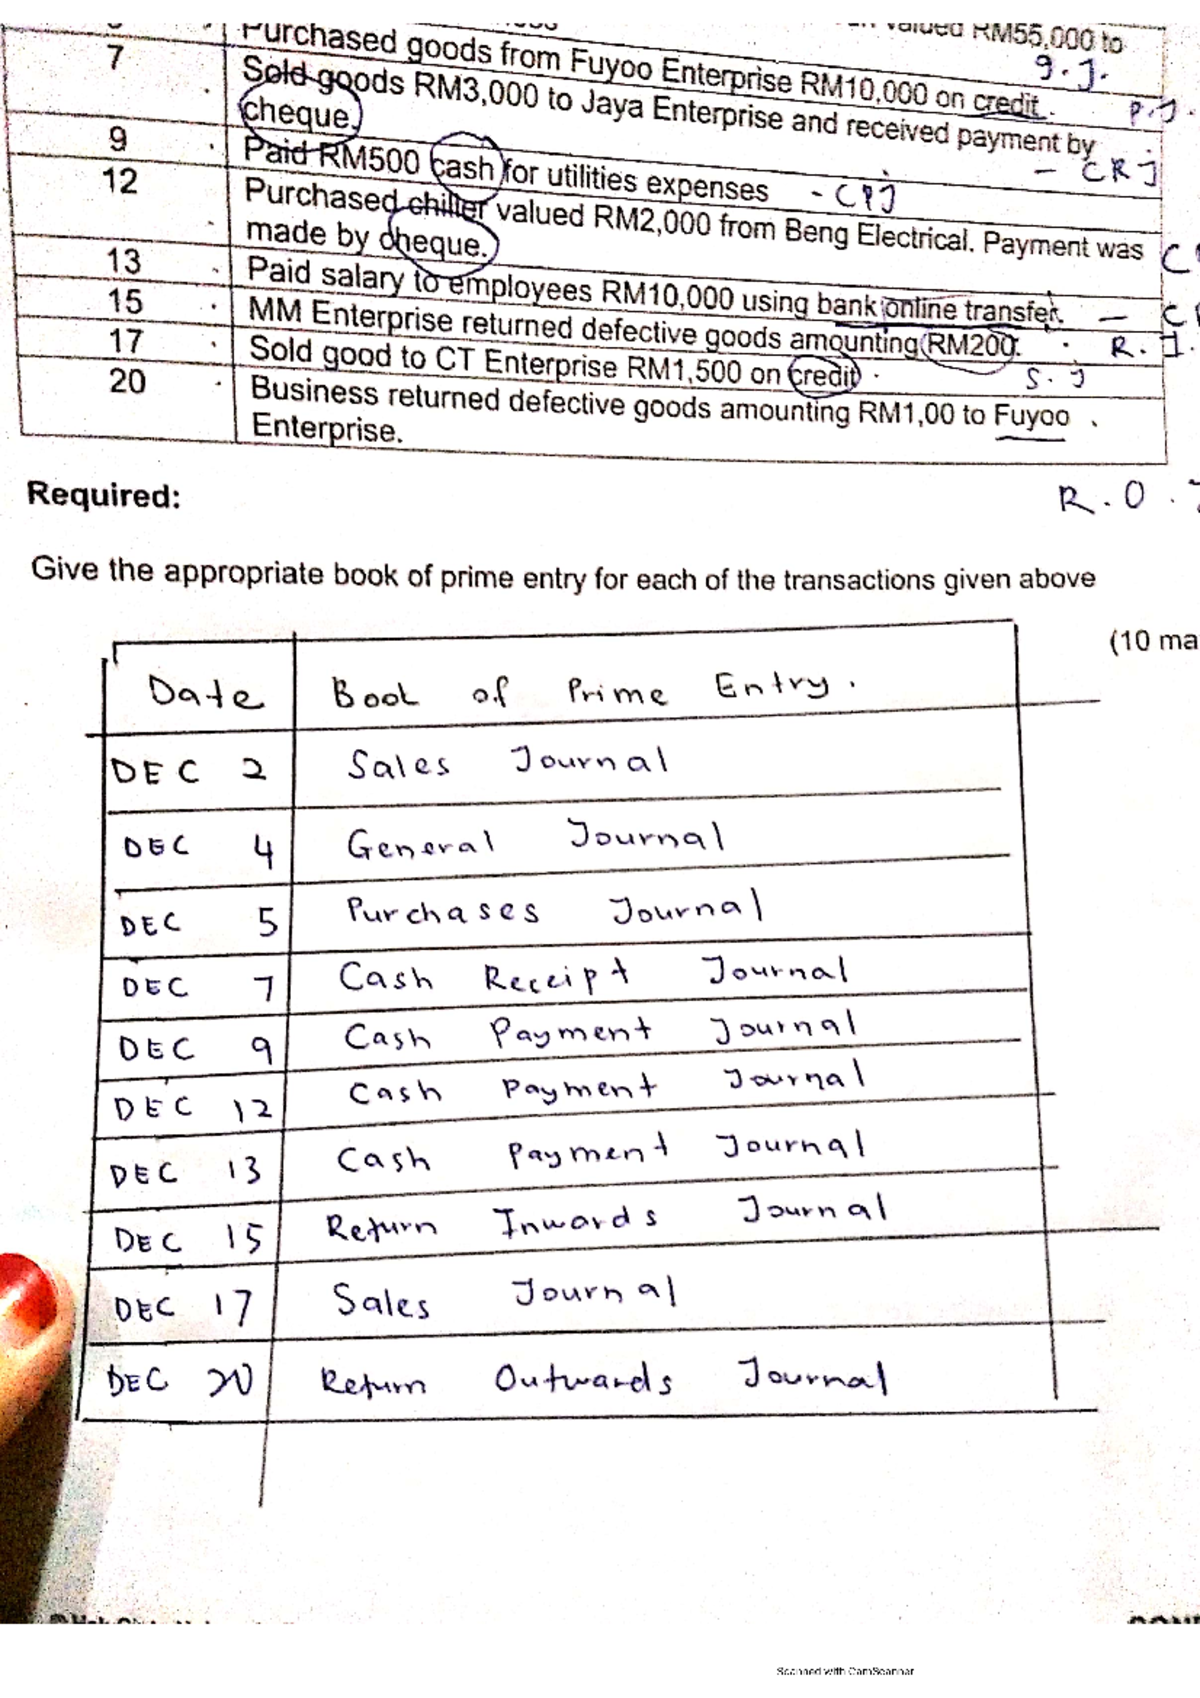 valued RM55,000 to
g.J.
Purchased goods from Fuyoo Enterprise RM10,000 on credit.
P.J.
7
Sold goods RM3,000 to Jaya Enterprise and received payment by
cheque.
- CRJ
9
Paid RM500 cash for utilities expenses
- CPJ
12
Purchased chiller valued RM2,000 from Beng Electrical. Payment was
made by cheque.
13
Paid salary to employees RM10,000 using bank online transfer.
15
MM Enterprise returned defective goods amounting RM200.
R.I.
17
Sold good to CT Enterprise RM1,500 on credit
S.J
20
Business returned defective goods amounting RM1,00 to Fuyoo
Enterprise.
Required:
R.O.
Give the appropriate book of prime entry for each of the transactions given above
(10 ma
Date Book of Prime Entry.
DEC 2 Sales Journal
DEC 4 General Journal
DEC 5 Purchases Journal
DEC 7 Cash Receipt Journal
DEC 9 Cash Payment Journal
DEC 12 Cash Payment Journal
DEC 13 Cash Payment Journal
DEC 15 Return Inwards Journal
DEC 17 Sales Journal
DEC 20 Return Outwards Journal
Scanned with CamScanner